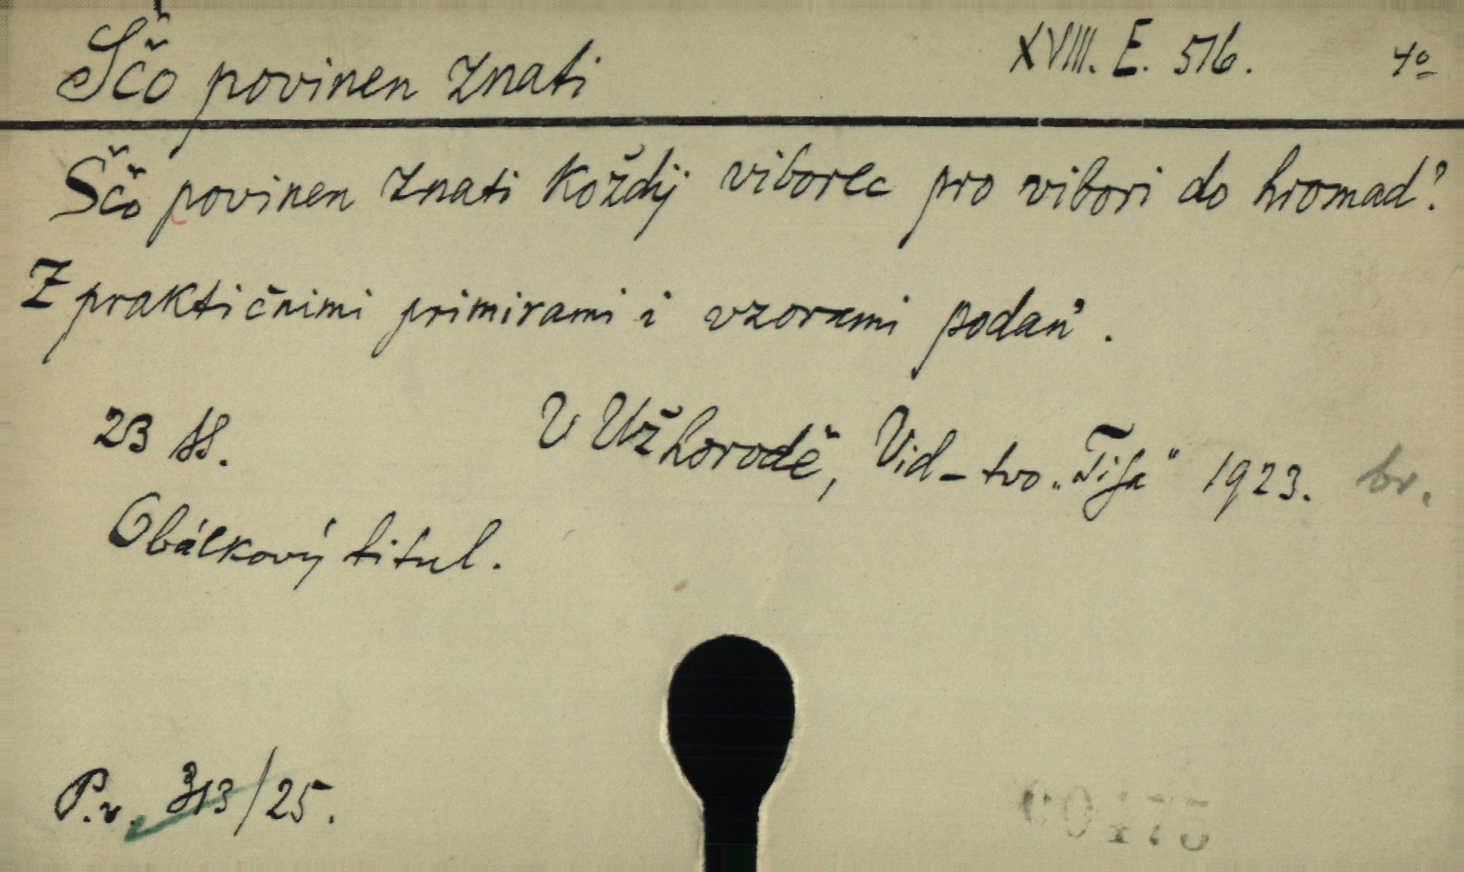 Ščo povinen znati XVIII. E. 516. 4º
Ščo povinen znati koždij viborec pro vibori do hromad?
Z praktičnimi primirami i vzorami podaň.
23 ss. V Užhorodě, Vid-tvo „Tisa" 1923. br.
Obálkový titul.
P.r. 313/25.